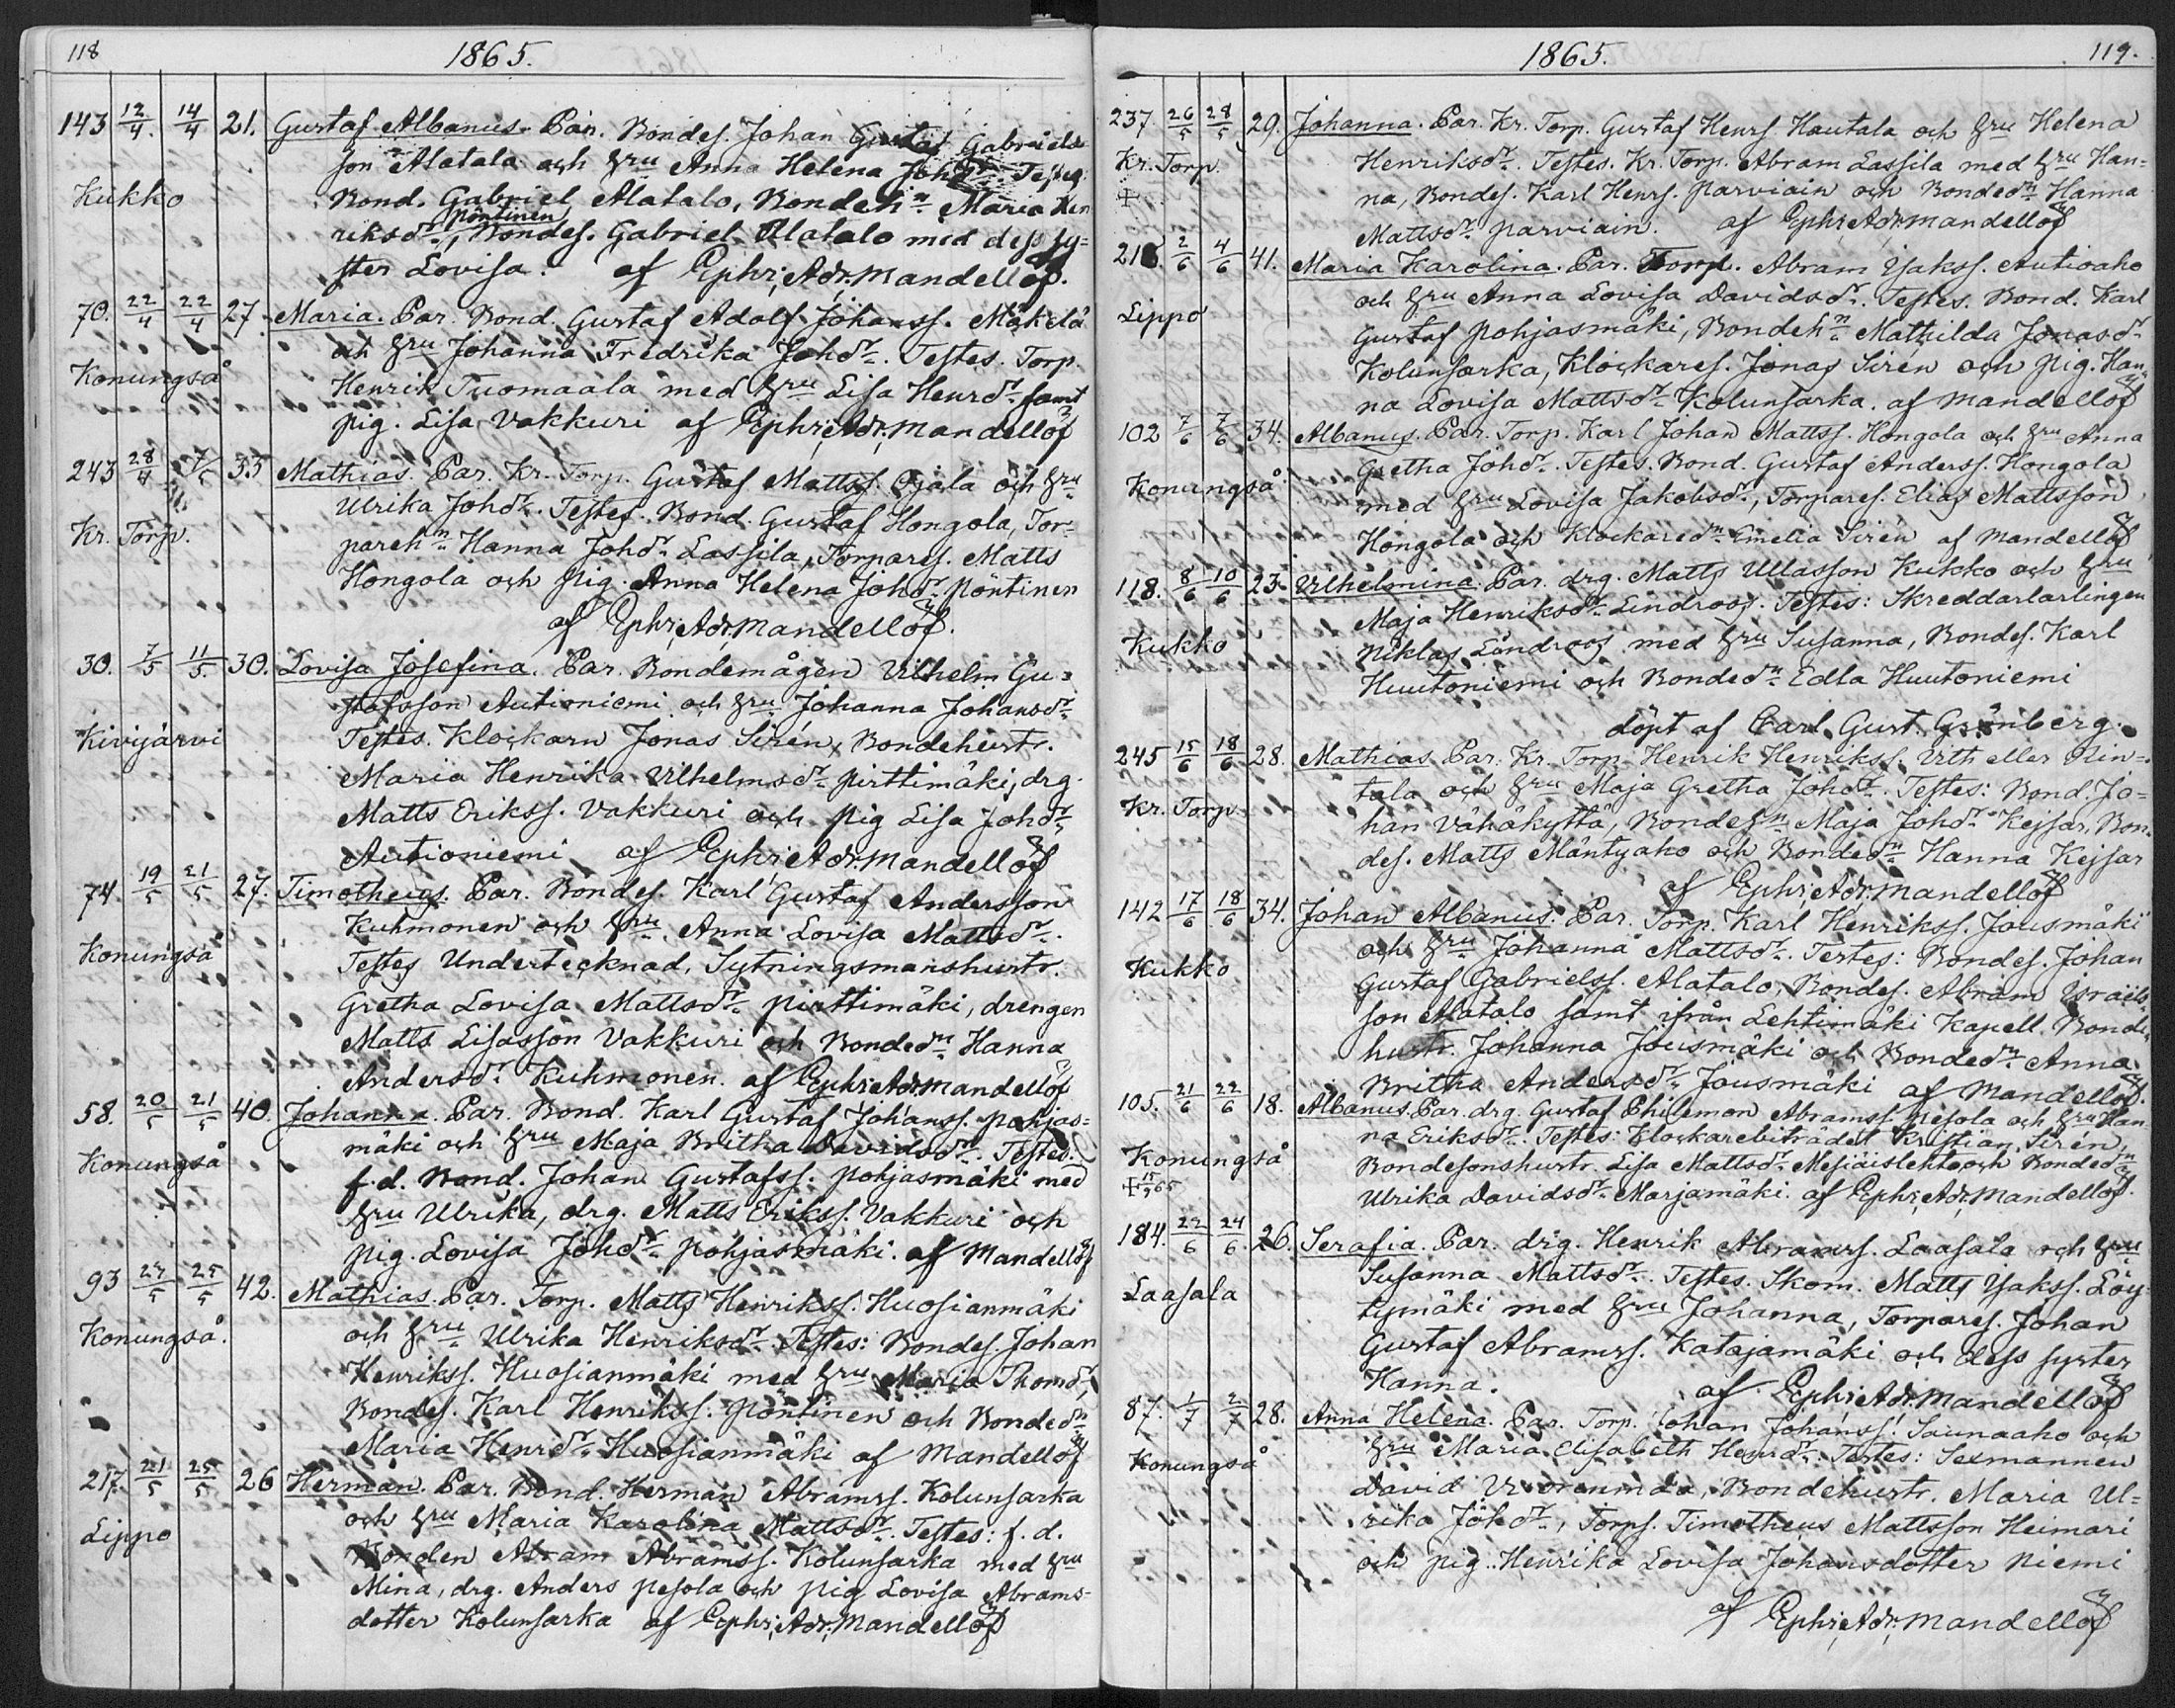 118
1865.
143 12/4. 14/4 21. Gustaf Albanus. Par. Bondes. Johan Gustaf Gabriels
son Alatala och hru Anna Helena Johdr. Testes
Kukko Bond. Gabriel Alatalo, Bondehn Maria Hen
Pöntinen
riksdr, Bondes. Gabriel Alatalo med dess sy=
ster Lovisa. af Ephr; Adr; Mandellöf.
70. 22/4 22/4 27 Maria. Par. Bond. Gustaf Adolf Johanss. Mäkelä
och hru Johanna Fredrika Johdr. Testes. Torp.
Konungså Henrik Tuomaala med hru Lisa Henrdr samt
pig. Lisa Vakkuri af Ephr; Adr; Mandellöf
243 28/4 7/5 33 Mathias. Par. Kr. Torp. Gustaf Mattss. Ojala och hru
Ulrika Johdr. Testes. Bond. Gustaf Hongola, Tor=
Kr. Torp. parehn Hanna Johdr Lassila, Torpares. Matts
Hongola och pig. Anna Helena Johdr Pöntinen
af Ephr; Adr; Mandellöf.
30. 7/5 11/5. 30. Lovisa Josefina. Par. Bondemågen Vilhelm Gu=
stafsson Autioniemi och hru Johanna Johansdr
Kivijärvi Testes. Klockarn Jonas Sirén, Bondehustr.
Maria Henrika Vilhelmsdr Pirttimäki, drg.
Matts Erikss. Vakkuri och pig Lisa Johdr
Autioniemi af Ephr; Adr; Mandellöf
74. 19/5 21/5 27. Timotheus. Par. Bondes. Karl Gustaf Andersson
Kuhmonen och hru Anna Lovisa Mattsdr.
Konungså Testes Undertecknad, Sytningsmanshustr.
Gretha Lovisa Mattsdr Pirttimäki, drengen
Matts Lisasson Vakkuri och Bondedn Hanna
Andersdr Kuhmonen. af Ephr; Adr; Mandellöf
58. 20/5 21/5 40. Johanna. Par. Bond. Karl Gustaf Johanss. Pohjas=
mäki och hru Maja Britha Davidsdr. Testes.
Konungså f.d. Bond. Johan Gustafss. Pohjasmäki med
hru Ulrika, drg. Matts Erikss. Vakkuri och
pig. Lovisa Johdr Pohjasmäki. af Mandellöf
93 24/5 25/5 42. Mathias. Par. Torp. Matts Henrikss. Huosianmäki
och hru Ulrika Henriksdr Testes: Bondes. Johan
Konungså. Henrikss. Huosianmäki med hru Maria Thomdr,
Bondes. Karl Henrikss. Pöntinen och Bondedn
Maria Henrdr Huosianmäki af Mandellöf
217. 21/5 25/5 26 Herman. Par. Bond. Herman Abramss. Kolunsarka
och hru Maria Karolina Mattsdr. Testes: f.d.
Lippo Bonden Abram Abramss. Kolunsarka med hru
Mina, drg. Anders Pesola och pig Lovisa Abrams=
dotter Kolunsarka af Ephr; Adr; Mandellöf
1865.
119.
237 26/5 28/5 29. Johanna. Par. Kr. Torp. Gustaf Henrs Hautala och hru Helena
Kr. Torp. Henriksdr. Testes. Kr. Torp. Abram Lassila med hru Han=
na, Bondes. Karl Henrs. Parviain och Bondedn Hanna
Mattsdr Parviain. af Ephr; Adr; Mandellöf
218. 2/6 4/6 41. Maria Karolina. Par. Torp. Abram Isakss. Autioaho
och hru Anna Lovisa Davidsdr. Testes. Bond. Karl
Lippo Gustaf Pohjasmäki, Bondehn Mathilda Jonasdr
Kolunsarka, Klockares. Jonas Sirén och pig. Han=
na Lovisa Mattsdr Kolunsarka. af Mandellöf
102 7/6 7/6 34. Albanus. Par. Torp. Karl Johan Mattss. Hongola och hru Anna
Gretha Johdr. Testes. Bond. Gustaf Anderss. Hongola
Konungså med hru Lovisa Jakobsdr, Torpares. Elias Mattsson
Hongola och Klockaredn Emelia Sirén af Mandellöf
118. 8/6 10/6 23. Vilhelmina. Par. drg. Matts Ullasson Kukko och hru
Maja Henriksdr Lindroos. Testes: Skreddarlärlingen
Kukko Niklas Lindroos med hru Susanna, Bondes. Karl
Huutoniemi och Bondedn Edla Huutoniemi
döpt af Carl Gust. Grönberg.
245 15/6 18/6 28. Mathias Par. Kr. Torp. Henrik Henrikss. Vith eller Nin=
tala och hru Maja Gretha Johdr. Testes: Bond. Jo=
Kr. Torp. han Vähäkyttä, Bondehn Maja Johdr Kejsar, Bon=
des. Matts Mäntyaho och Bondedn Hanna Kejsar
af Ephr; Adr; Mandellöf
142 17/6 18/6 34. Johan Albanus. Par. Torp. Karl Henrikss. Jousmäki
och hru Johanna Mattsdr. Testes: Bondes. Johan
Kukko Gustaf Gabrielss. Alatalo, Bondes. Abram Israëls=
son Alatalo samt ifrån Lehtimäki Kapell. Bonde
hustr. Johanna Jousmäki och Bondedn Anna
Britha Andersdr Jousmäki af Mandellöf.
105. 21/6 22/6 18. Albanus. Par. drg. Gustaf Philemon Abramss. Pesola och hru Han=
na Eriksdr. Testes: Klockarebiträdet Kristian Sirén,
Konungså Bondesonshustr. Lisa Mattsdr Mesiäislehto och Bondedn
15/9 65 Ulrika Davidsdr Marjamäki. af Ephr; Adr; Mandellöf.
184. 22/6 24/6. 26. Serafia. Par. drg. Henrik Abramss. Laasala och hru
Susanna Mattsdr. Testes. Skom. Matts Isakss. Löy=
Laasala tymäki med hru Johanna, Torpares. Johan
Gustaf Abramss. Katajamäki och dess syster
Hanna. af Ephr; Adr; Mandellöf
87. 1/7 2/7 28. Anna Helena. Par. Torp. Johan Johanss. Saunaaho och
hru Maria Elisabeth Henrdr. Testes: Sexmannen
Konungså David Vuorenmaa, Bondehustr. Maria Ul=
rika Johdr, Torps. Timotheus Mattsson Heimari
och pig. Henrika Lovisa Johansdotter Niemi
af Ephr; Adr; Mandellöf